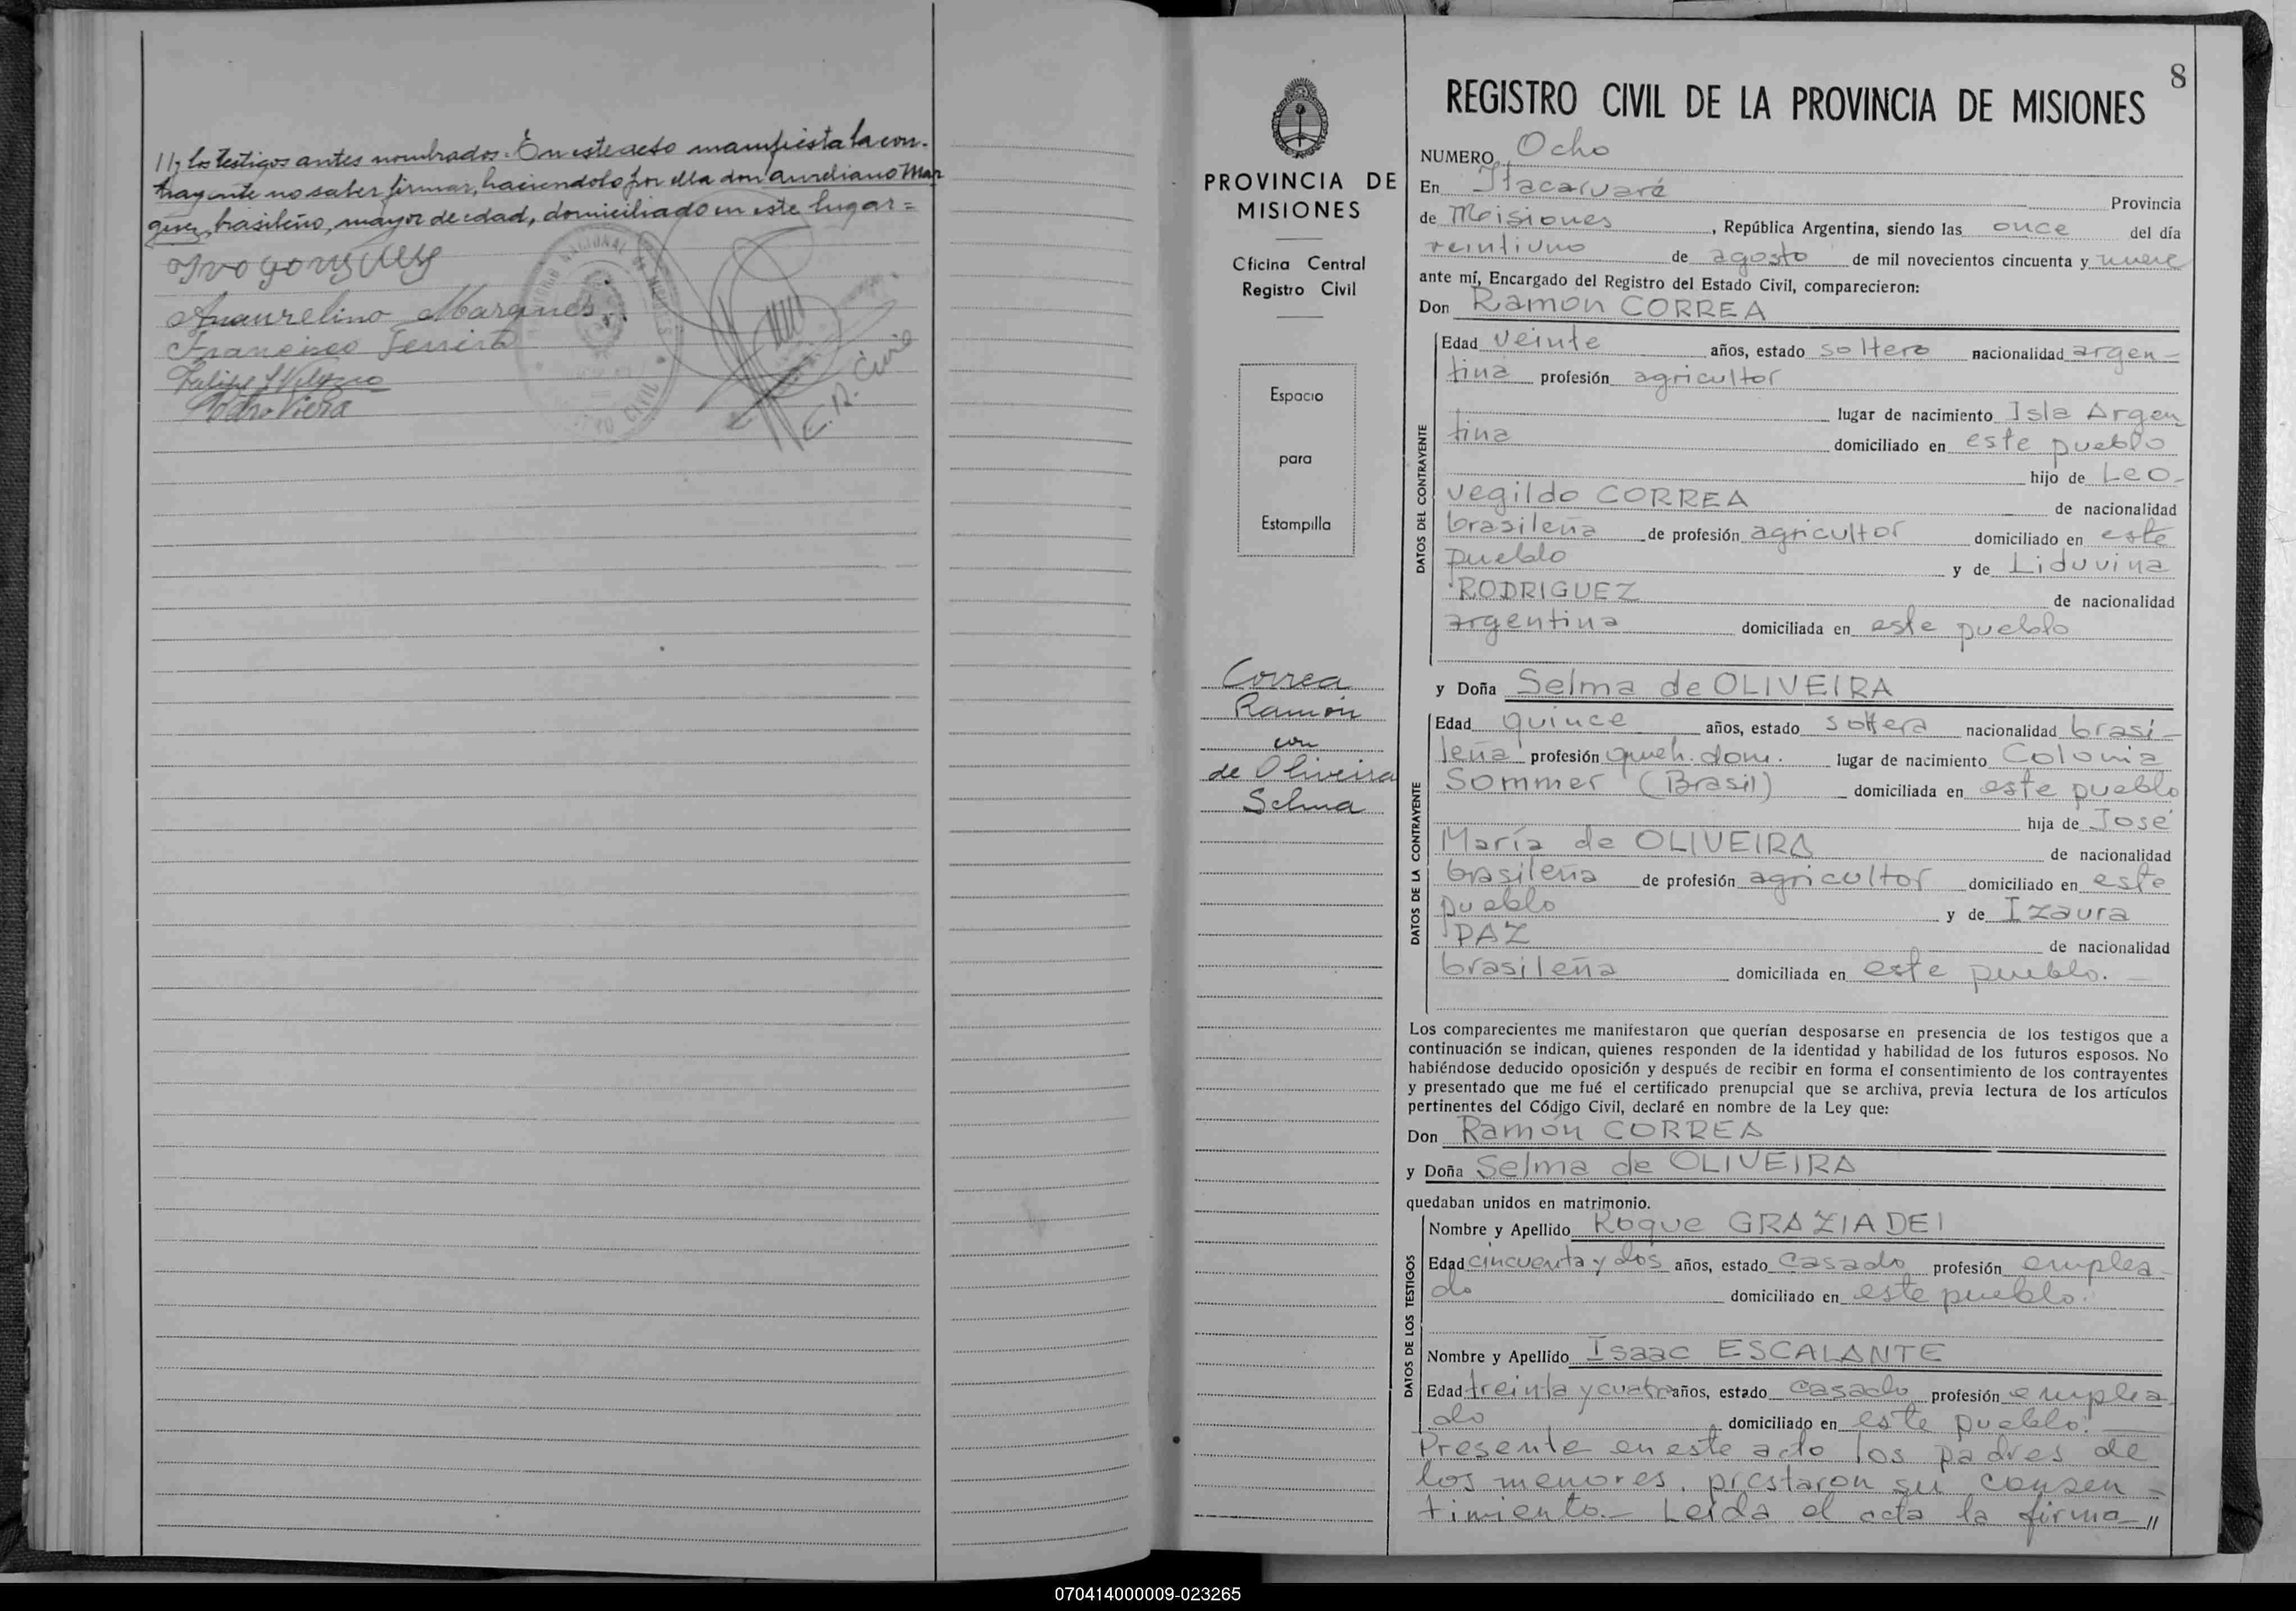 //; los testigos antes nombrados. En este acto manifiesta la con-
trayente no saber firmar, haciendolo por ella don Aureliano Mar
quez, brasileño, mayor de edad, domiciliado en este lugar =
Marques
Francisco Ferreira
Pedro Viera
E. R. Civil
CIVIL
PROVINCIA DE
MISIONES
Oficina Central
Registro Civil
Espacio
para
Estampilla
Correa
Ramón
con
de Oliveira
Selma
8
REGISTRO CIVIL DE LA PROVINCIA DE MISIONES
NUMERO Ocho
En Itacaruaré Provincia
de Misiones, República Argentina, siendo las once del día
veintiuno de agosto de mil novecientos cincuenta y nueve
ante mí, Encargado del Registro del Estado Civil, comparecieron:
Don Ramon CORREA
DATOS DEL CONTRAYENTE
Edad veinte años, estado soltero nacionalidad argen-
tina profesión agricultor
lugar de nacimiento Isla Argen
tina domiciliado en este pueblo
hijo de Leo-
vegildo CORREA de nacionalidad
brasileña de profesión agricultor domiciliado en este
pueblo y de Liduvina
RODRIGUEZ de nacionalidad
argentina domiciliada en este pueblo
y Doña Selma de OLIVEIRA
DATOS DE LA CONTRAYENTE
Edad quince años, estado soltera nacionalidad brasi-
leña profesión queh. dom. lugar de nacimiento Colonia
Sommer (Brasil) domiciliada en este pueblo
hija de José
María de OLIVEIRA de nacionalidad
brasileña de profesión agricultor domiciliado en este
pueblo y de Izaura
PAZ de nacionalidad
brasileña domiciliada en este pueblo.
Los comparecientes me manifestaron que querían desposarse en presencia de los testigos que a
continuación se indican, quienes responden de la identidad y habilidad de los futuros esposos. No
habiéndose deducido oposición y después de recibir en forma el consentimiento de los contrayentes
y presentado que me fué el certificado prenupcial que se archiva, previa lectura de los artículos
pertinentes del Código Civil, declaré en nombre de la Ley que:
Don Ramón CORREA
y Doña Selma de OLIVEIRA
quedaban unidos en matrimonio.
DATOS DE LOS TESTIGOS
Nombre y Apellido Roque GRAZIADEI
Edad cincuenta y dos años, estado casado profesión emplea-
do domiciliado en este pueblo.
Nombre y Apellido Isaac ESCALANTE
Edad treinta y cuatro años, estado casado profesión emplea-
do domiciliado en este pueblo.
Presente en este acto los padres de
los menores, prestaron su consen-
timiento.- Leída el acta la firma-//
070414000009-023265